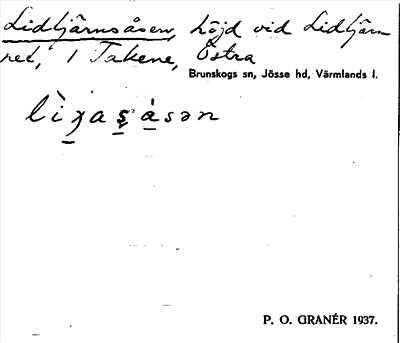 Lidtjärnsåsen, höjd vid Lidtjärn
net, i Takene, Östra
Brunskogs sn, Jösse hd, Värmlands l.
P. O. GRANÉR 1937.